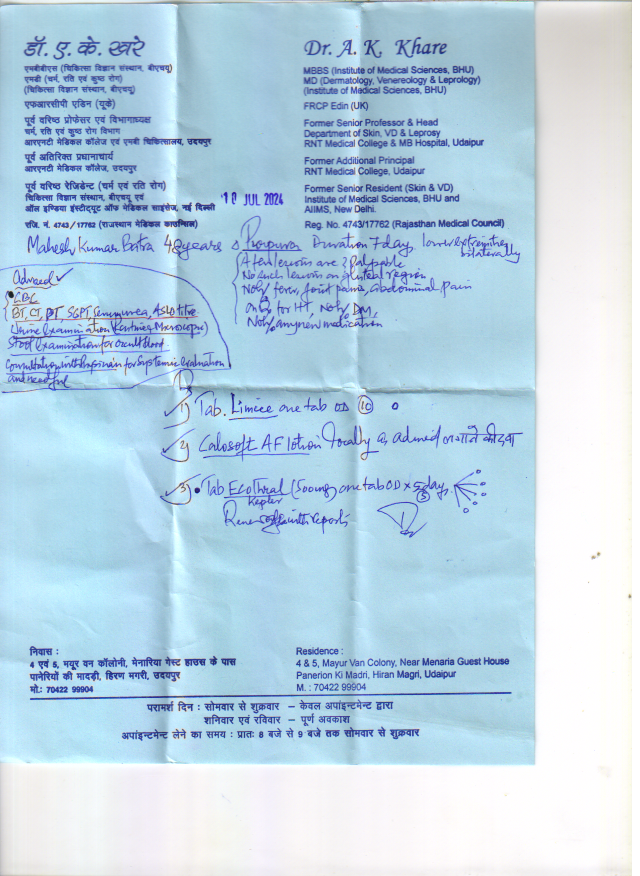 डॉ. ए. के. खरे
एमबीबीएस (चिकित्सा विज्ञान संस्थान, बीएचयू)
एमडी (चर्म, रति एवं कुष्ठ रोग)
(चिकित्सा विज्ञान संस्थान, बीएचयू)
एफआरसीपी एडिन (यूके)
पूर्व वरिष्ठ प्रोफेसर एवं विभागाध्यक्ष
चर्म, रति एवं कुष्ठ रोग विभाग
आरएनटी मेडिकल कॉलेज एवं एमबी चिकित्सालय, उदयपुर
पूर्व अतिरिक्त प्रधानाचार्य
आरएनटी मेडिकल कॉलेज, उदयपुर
पूर्व वरिष्ठ रेजिडेन्ट (चर्म एवं रति रोग)
चिकित्सा विज्ञान संस्थान, बीएचयू एवं
ऑल इण्डिया इंस्टीट्यूट ऑफ मेडिकल साइंसेज, नई दिल्ली
रजि. नं. 4743/17762 (राजस्थान मेडिकल काउन्सिल)
Dr. A. K. Khare
MBBS (Institute of Medical Sciences, BHU)
MD (Dermatology, Venereology & Leprology)
(Institute of Medical Sciences, BHU)
FRCP Edin (UK)
Former Senior Professor & Head
Department of Skin, VD & Leprosy
RNT Medical College & MB Hospital, Udaipur
Former Additional Principal
RNT Medical College, Udaipur
Former Senior Resident (Skin & VD)
Institute of Medical Sciences, BHU and
AIIMS, New Delhi.
Reg. No. 4743/17762 (Rajasthan Medical Council)
10 JUL 2024
Mahesh Kumar Batra 48 years Purpura Duration 7 days lower extremities
bilaterally
A few lesions are ? Palpable
No such lesion on gluteal region
No h/o fever, joint pains, abdominal pain
On for HT, No h/o DM,
No h/o any new medication
Advised
CBC
BT, CT, PT, SGPT, Serum urea, ASLO titre
Urine Examination (Routine & Microscopic)
Stool Examination for occult blood
Consultation with Physician for Systemic Evaluation
and needful
1) Tab. Limcee one tab OD 10
2) Calosoft AF lotion locally as advised लगाने की दवा
3) Tab Ecothral (500mg) one tab OD x 5 days
5
Review again with reports
निवास :
4 एवं 5, मयूर वन कॉलोनी, मेनारिया गेस्ट हाउस के पास
पानेरियों की मादड़ी, हिरण मगरी, उदयपुर
मो.: 70422 99904
Residence :
4 & 5, Mayur Van Colony, Near Menaria Guest House
Panerion Ki Madri, Hiran Magri, Udaipur
M. : 70422 99904
परामर्श दिन : सोमवार से शुक्रवार – केवल अपांइन्टमेन्ट द्वारा
शनिवार एवं रविवार – पूर्ण अवकाश
अपांइन्टमेन्ट लेने का समय : प्रातः 8 बजे से 9 बजे तक सोमवार से शुक्रवार